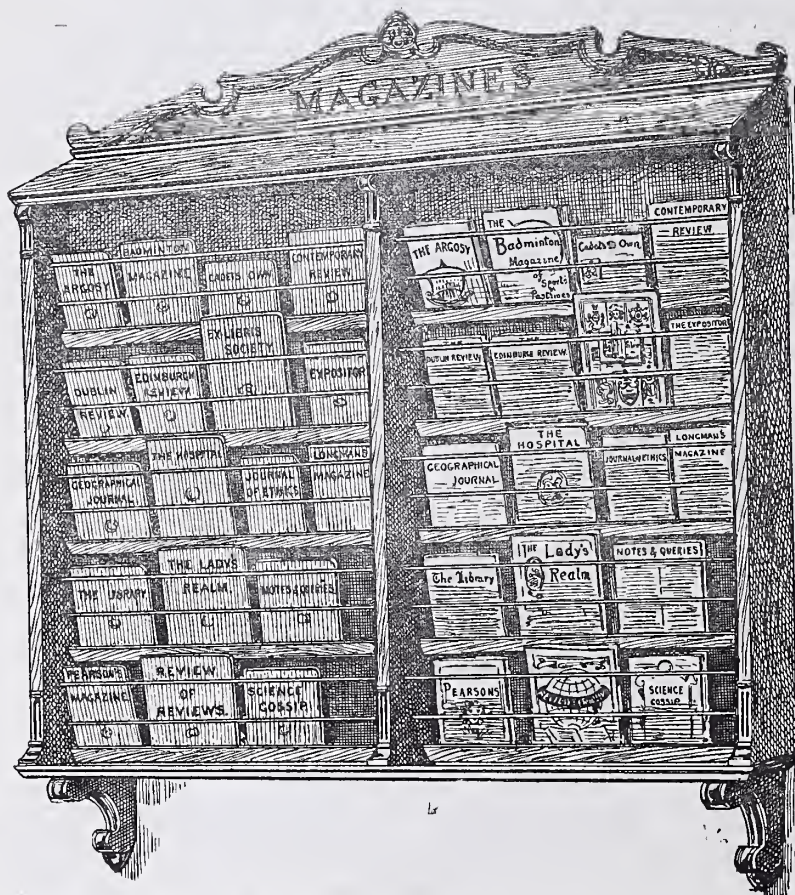 MAGAZINES
THE
ARGOSY
BADMINTON
MAGAZINE
CADETS OWN
CONTEMPORARY
REVIEW
DUBLIN
REVIEW
EDINBURGH
REVIEW
EX LIBRIS
SOCIETY
EXPOSITOR
GEOGRAPHICAL
JOURNAL
THE HOSPITAL
JOURNAL
OF ETHICS
LONGMANS
MAGAZINE
THE LIBRARY
THE LADY'S
REALM
NOTES & QUERIES
PEARSON'S
MAGAZINE
REVIEW
OF
REVIEWS
SCIENCE
GOSSIP
THE ARGOSY
THE
Badminton
Magazine
of
Sports
Pastimes
Cadets Own
CONTEMPORARY
REVIEW
DUBLIN REVIEW
EDINBURGH REVIEW
THE EXPOSITOR
GEOGRAPHICAL
JOURNAL
THE
HOSPITAL
JOURNAL of ETHICS
LONGMAN'S
MAGAZINE
The Library
THE Lady's
Realm
NOTES & QUERIES
PEARSONS
SCIENCE
GOSSIP